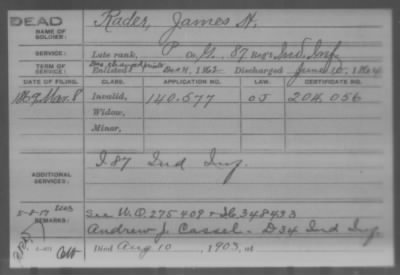 DEAD
NAME OF SOLDIER: Kader, James H.
SERVICE: Late rank, P Co. G, 87 Reg't Ind. Inf.
TERM OF SERVICE: Enlisted 1862 Discharged June 10, 1864
DATE OF FILING. CLASS. APPLICATION NO. LAW. CERTIFICATE NO.
1869 Mar. 8 Invalid, 140.577 OJ 204.056
Widow,
Minor,
ADDITIONAL SERVICES: I 87 Ind Inf.
5-8-17
REMARKS: See W.O. 275409 + 348433
Andrew J. Cassel - D 34 Ind Inf.
Died Aug 10, 1903, at